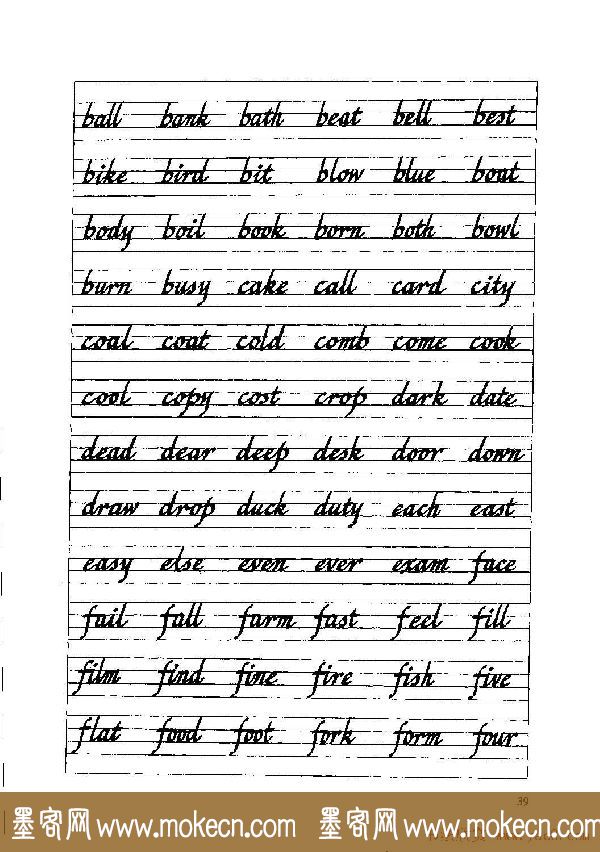 ball bank bath beat bell best
bike bird bit blow blue boat
body boil book born both bowl
burn busy cake call card city
coal coat cold comb come cook
cool copy cost crop dark date
dead dear deep desk door down
draw drop duck duty each east
easy else even ever exam face
fail fall farm fast feel fill
film find fine fire fish five
flat food foot fork form four
39
墨客网 www.mokecn.com 墨客网 www.mokecn.com